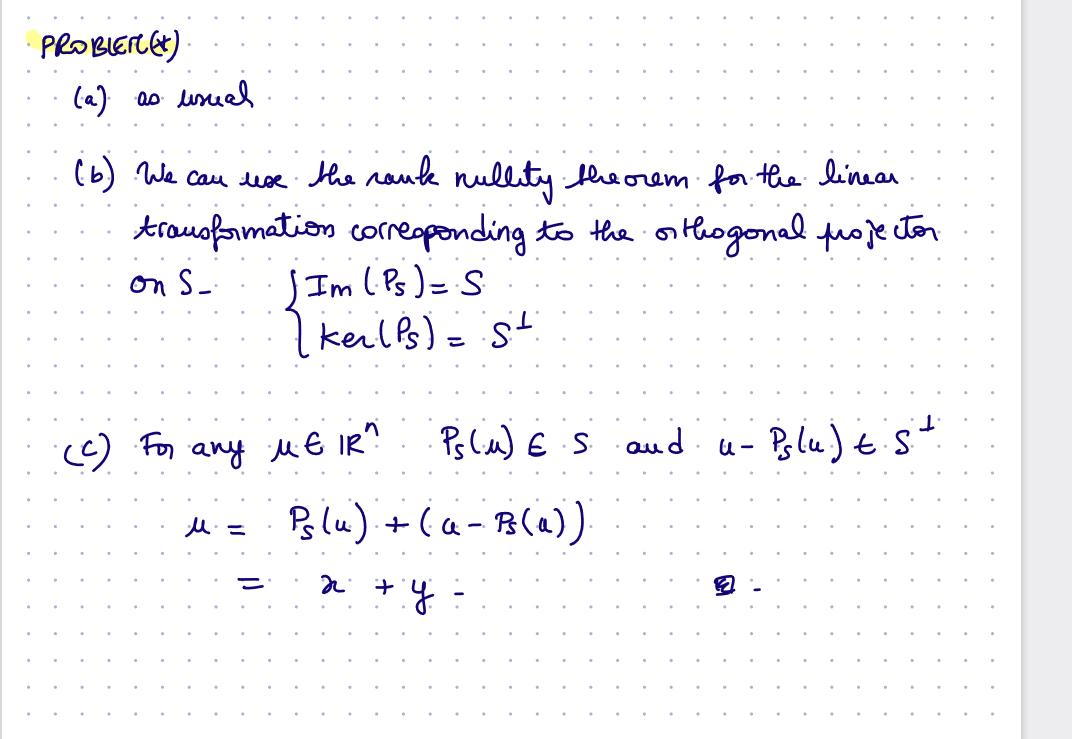 PROBLEM(*)
(a) as usual
(b) We can use the rank nullity theorem for the linear
transformation corresponding to the orthogonal projector
on S- { Im (P_S) = S
ker(P_S) = S^⊥
(c) For any u ∈ ℝ^n P_S(u) ∈ S and u - P_S(u) ∈ S^⊥
u = P_S(u) + (u - P_S(u))
= x + y -